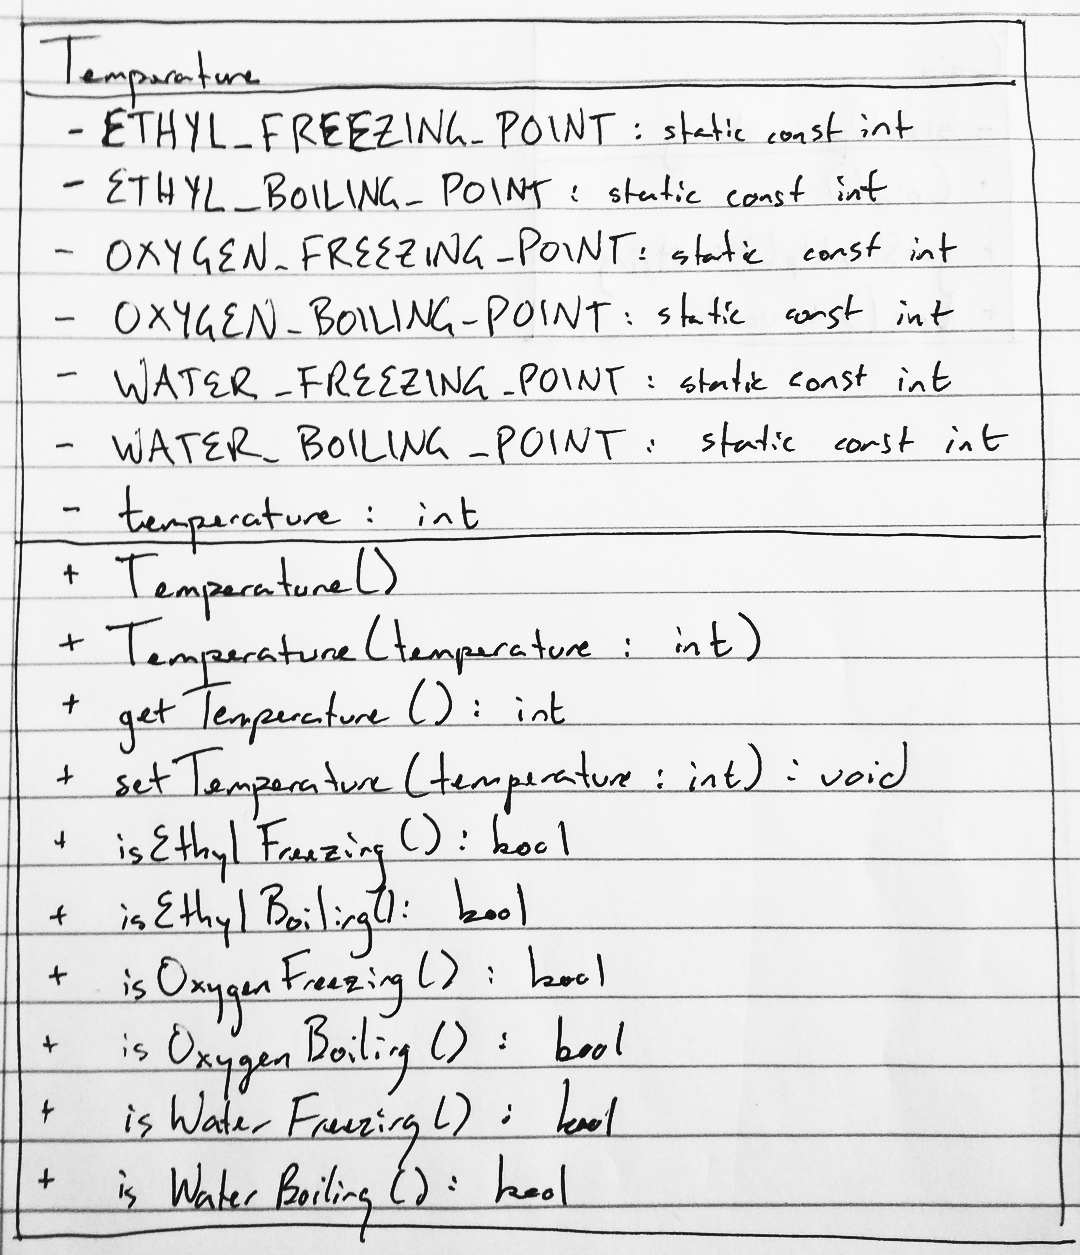 Temperature
- ETHYL_FREEZING_POINT : static const int
- ETHYL_BOILING_POINT : static const int
- OXYGEN_FREEZING_POINT : static const int
- OXYGEN_BOILING_POINT : static const int
- WATER_FREEZING_POINT : static const int
- WATER_BOILING_POINT : static const int
- temperature : int
+ Temperature()
+ Temperature(temperature : int)
+ getTemperature() : int
+ setTemperature(temperature : int) : void
+ isEthylFreezing() : bool
+ isEthylBoiling() : bool
+ isOxygenFreezing() : bool
+ isOxygenBoiling() : bool
+ isWaterFreezing() : bool
+ isWaterBoiling() : bool